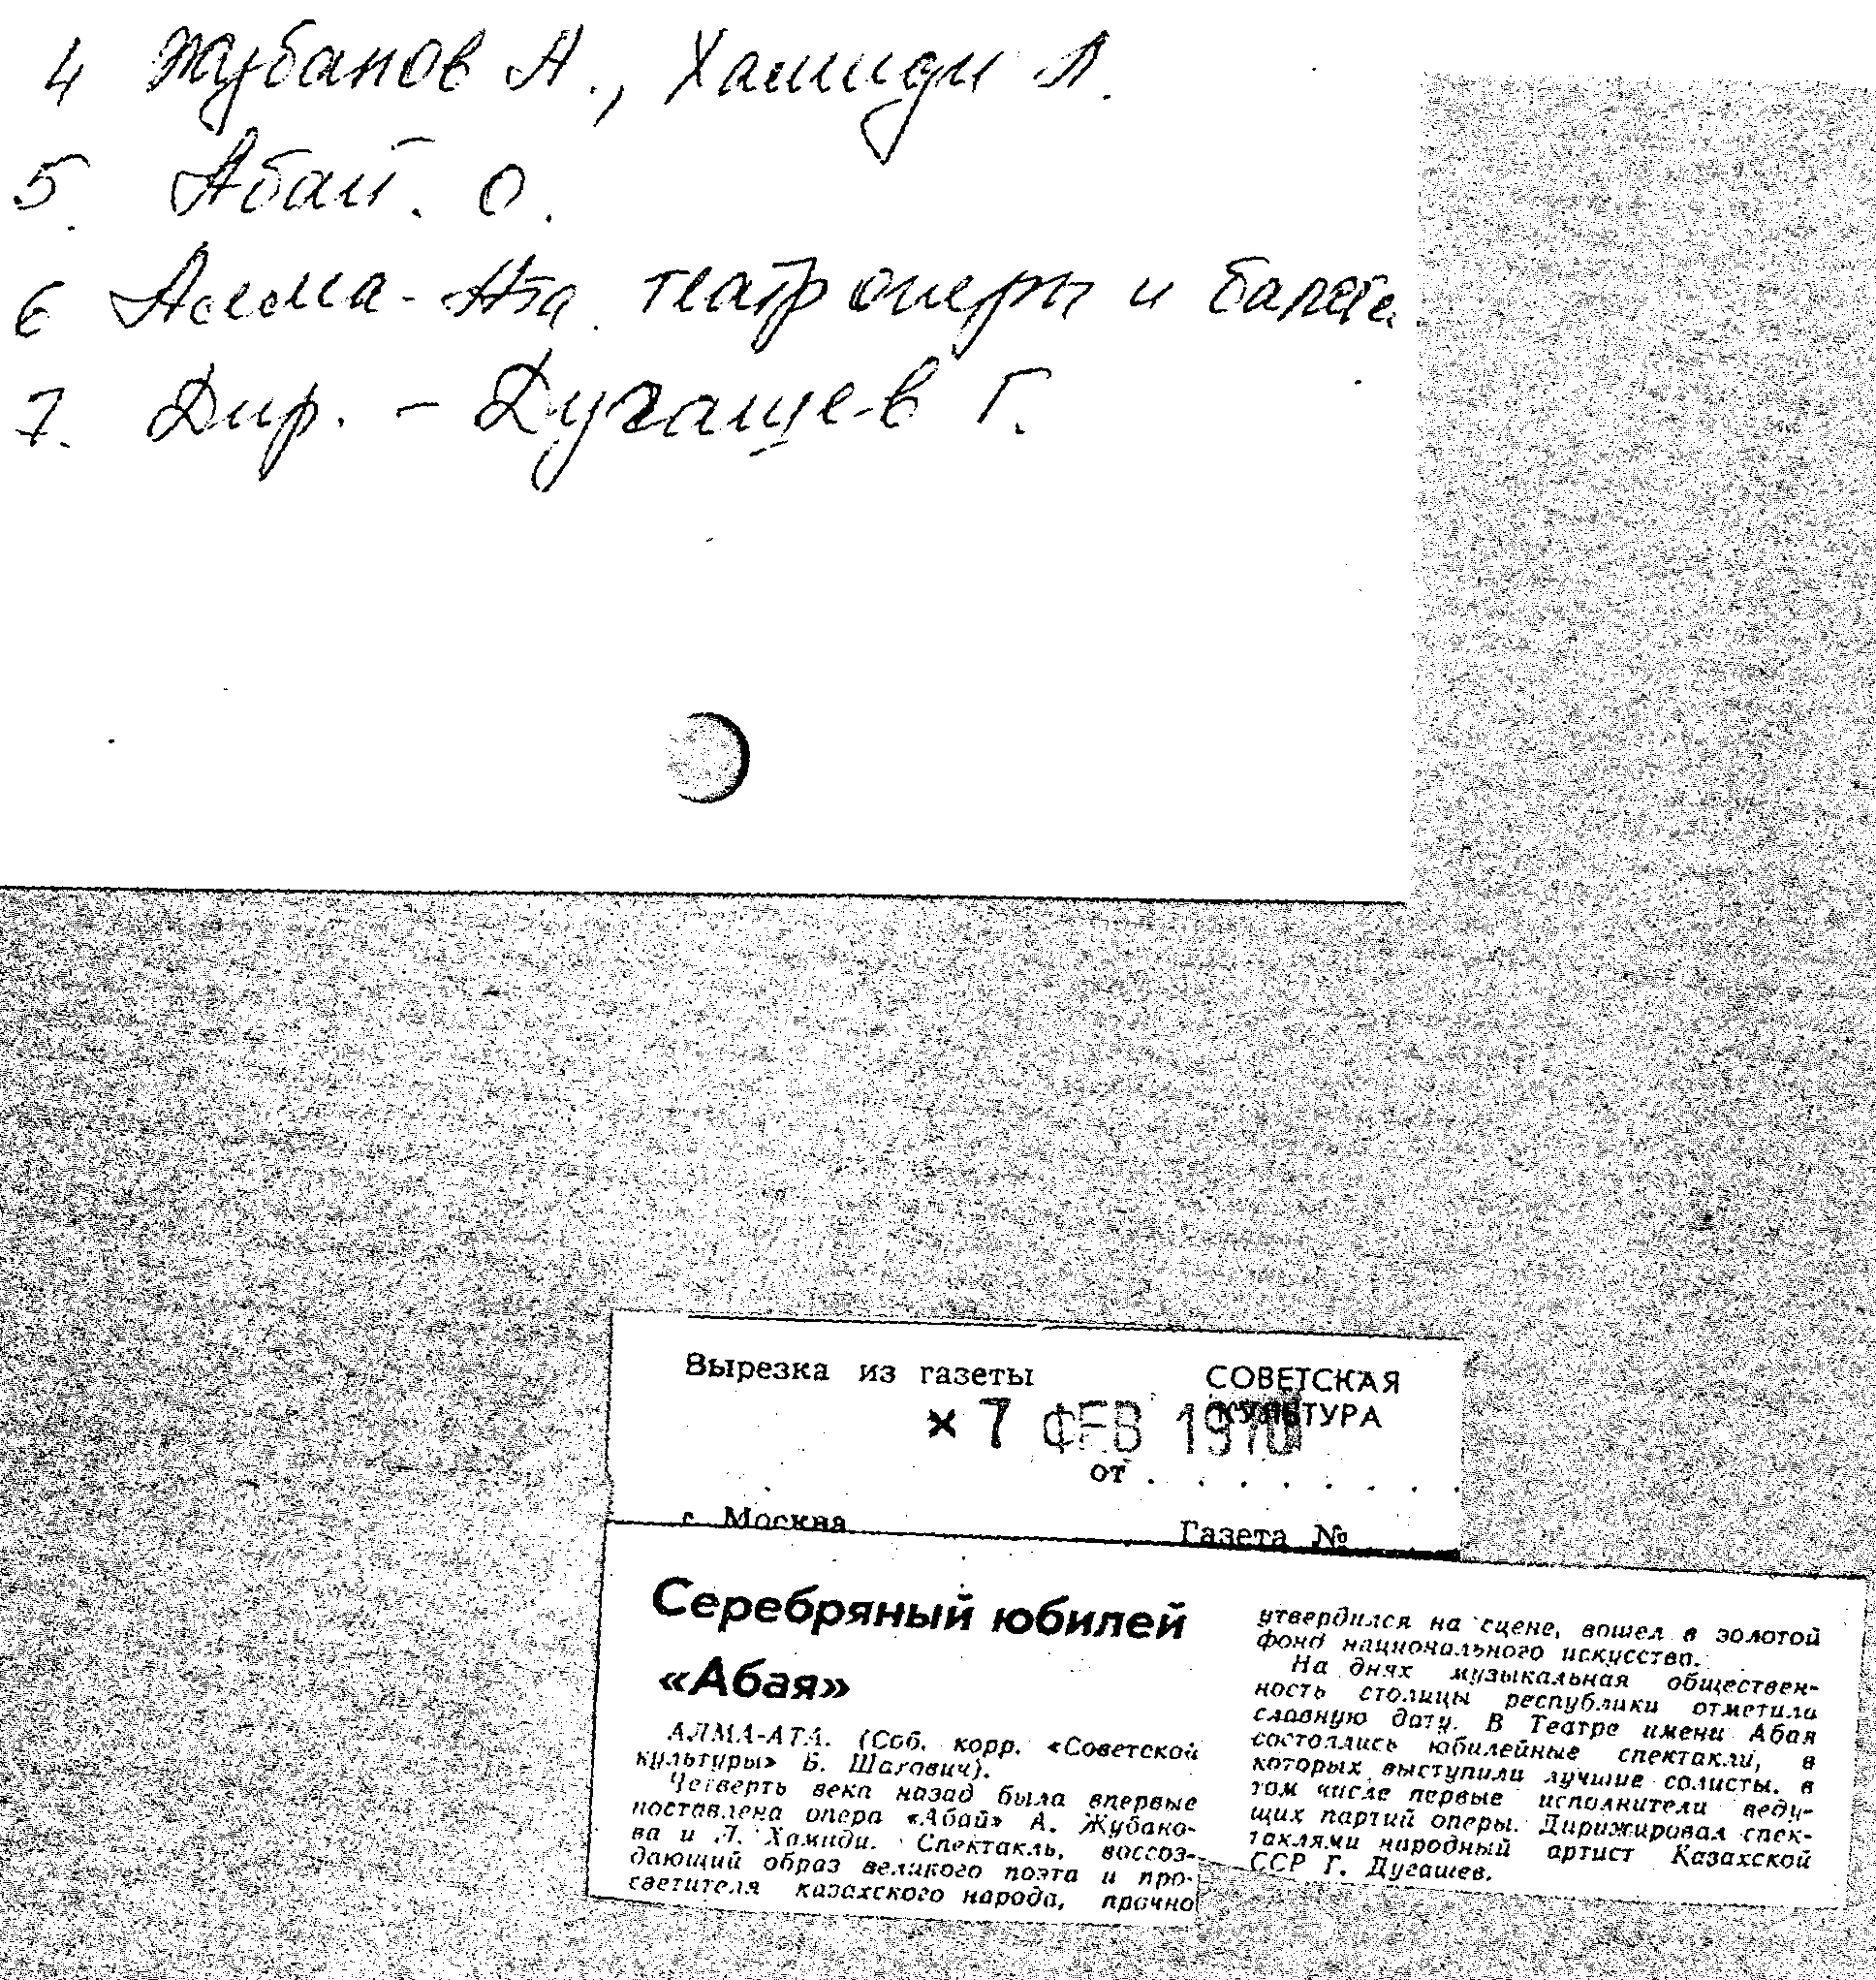 4 Жубанов А., Хамиди Л.
5. Абай. О.
6 Алма-Ата. театр оперы и балета.
7. Дир. – Дугашев Г.
Вырезка из газеты
СОВЕТСКАЯ
КУЛЬТУРА
× 7 ФЕВ 1970
от . . . . . . . .
г. Москва
Газета №
Серебряный юбилей
«Абая»
АЛМА-АТА. (Соб. корр. «Советской
культуры» Б. Шагович).
Четверть века назад была впервые
поставлена опера «Абай» А. Жубано-
ва и Л. Хамиди. Спектакль, воссоз-
дающий образ великого поэта и про-
светителя казахского народа, прочно
утвердился на сцене, вошел в золотой
фонд национального искусства.
На днях музыкальная обществен-
ность столицы республики отметила
славную дату. В Театре имени Абая
состоялись юбилейные спектакли, в
которых выступили лучшие солисты, в
том числе первые исполнители веду-
щих партий оперы. Дирижировал спек-
таклями народный артист Казахской
ССР Г. Дугашев.